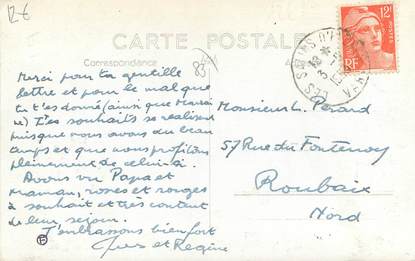 12€
CARTE POSTALE
Correspondance
83
12F
POSTES
RF
LES
Merci pour ta gentille
lettre et pour le mal que
tu t'es donné (ainsi que
). Les souhaits se réalisent
puisque nous avons du beau
temps et que nous profitons
pleinement de celui-ci.
Avons vu Papa et
Maman, roses et rouges
à souhait et très content
de leur séjour.
T'embrassons bien fort
et Régine
Monsieur L. Pérard
57 Rue du Fontenoy
Roubaix
Nord